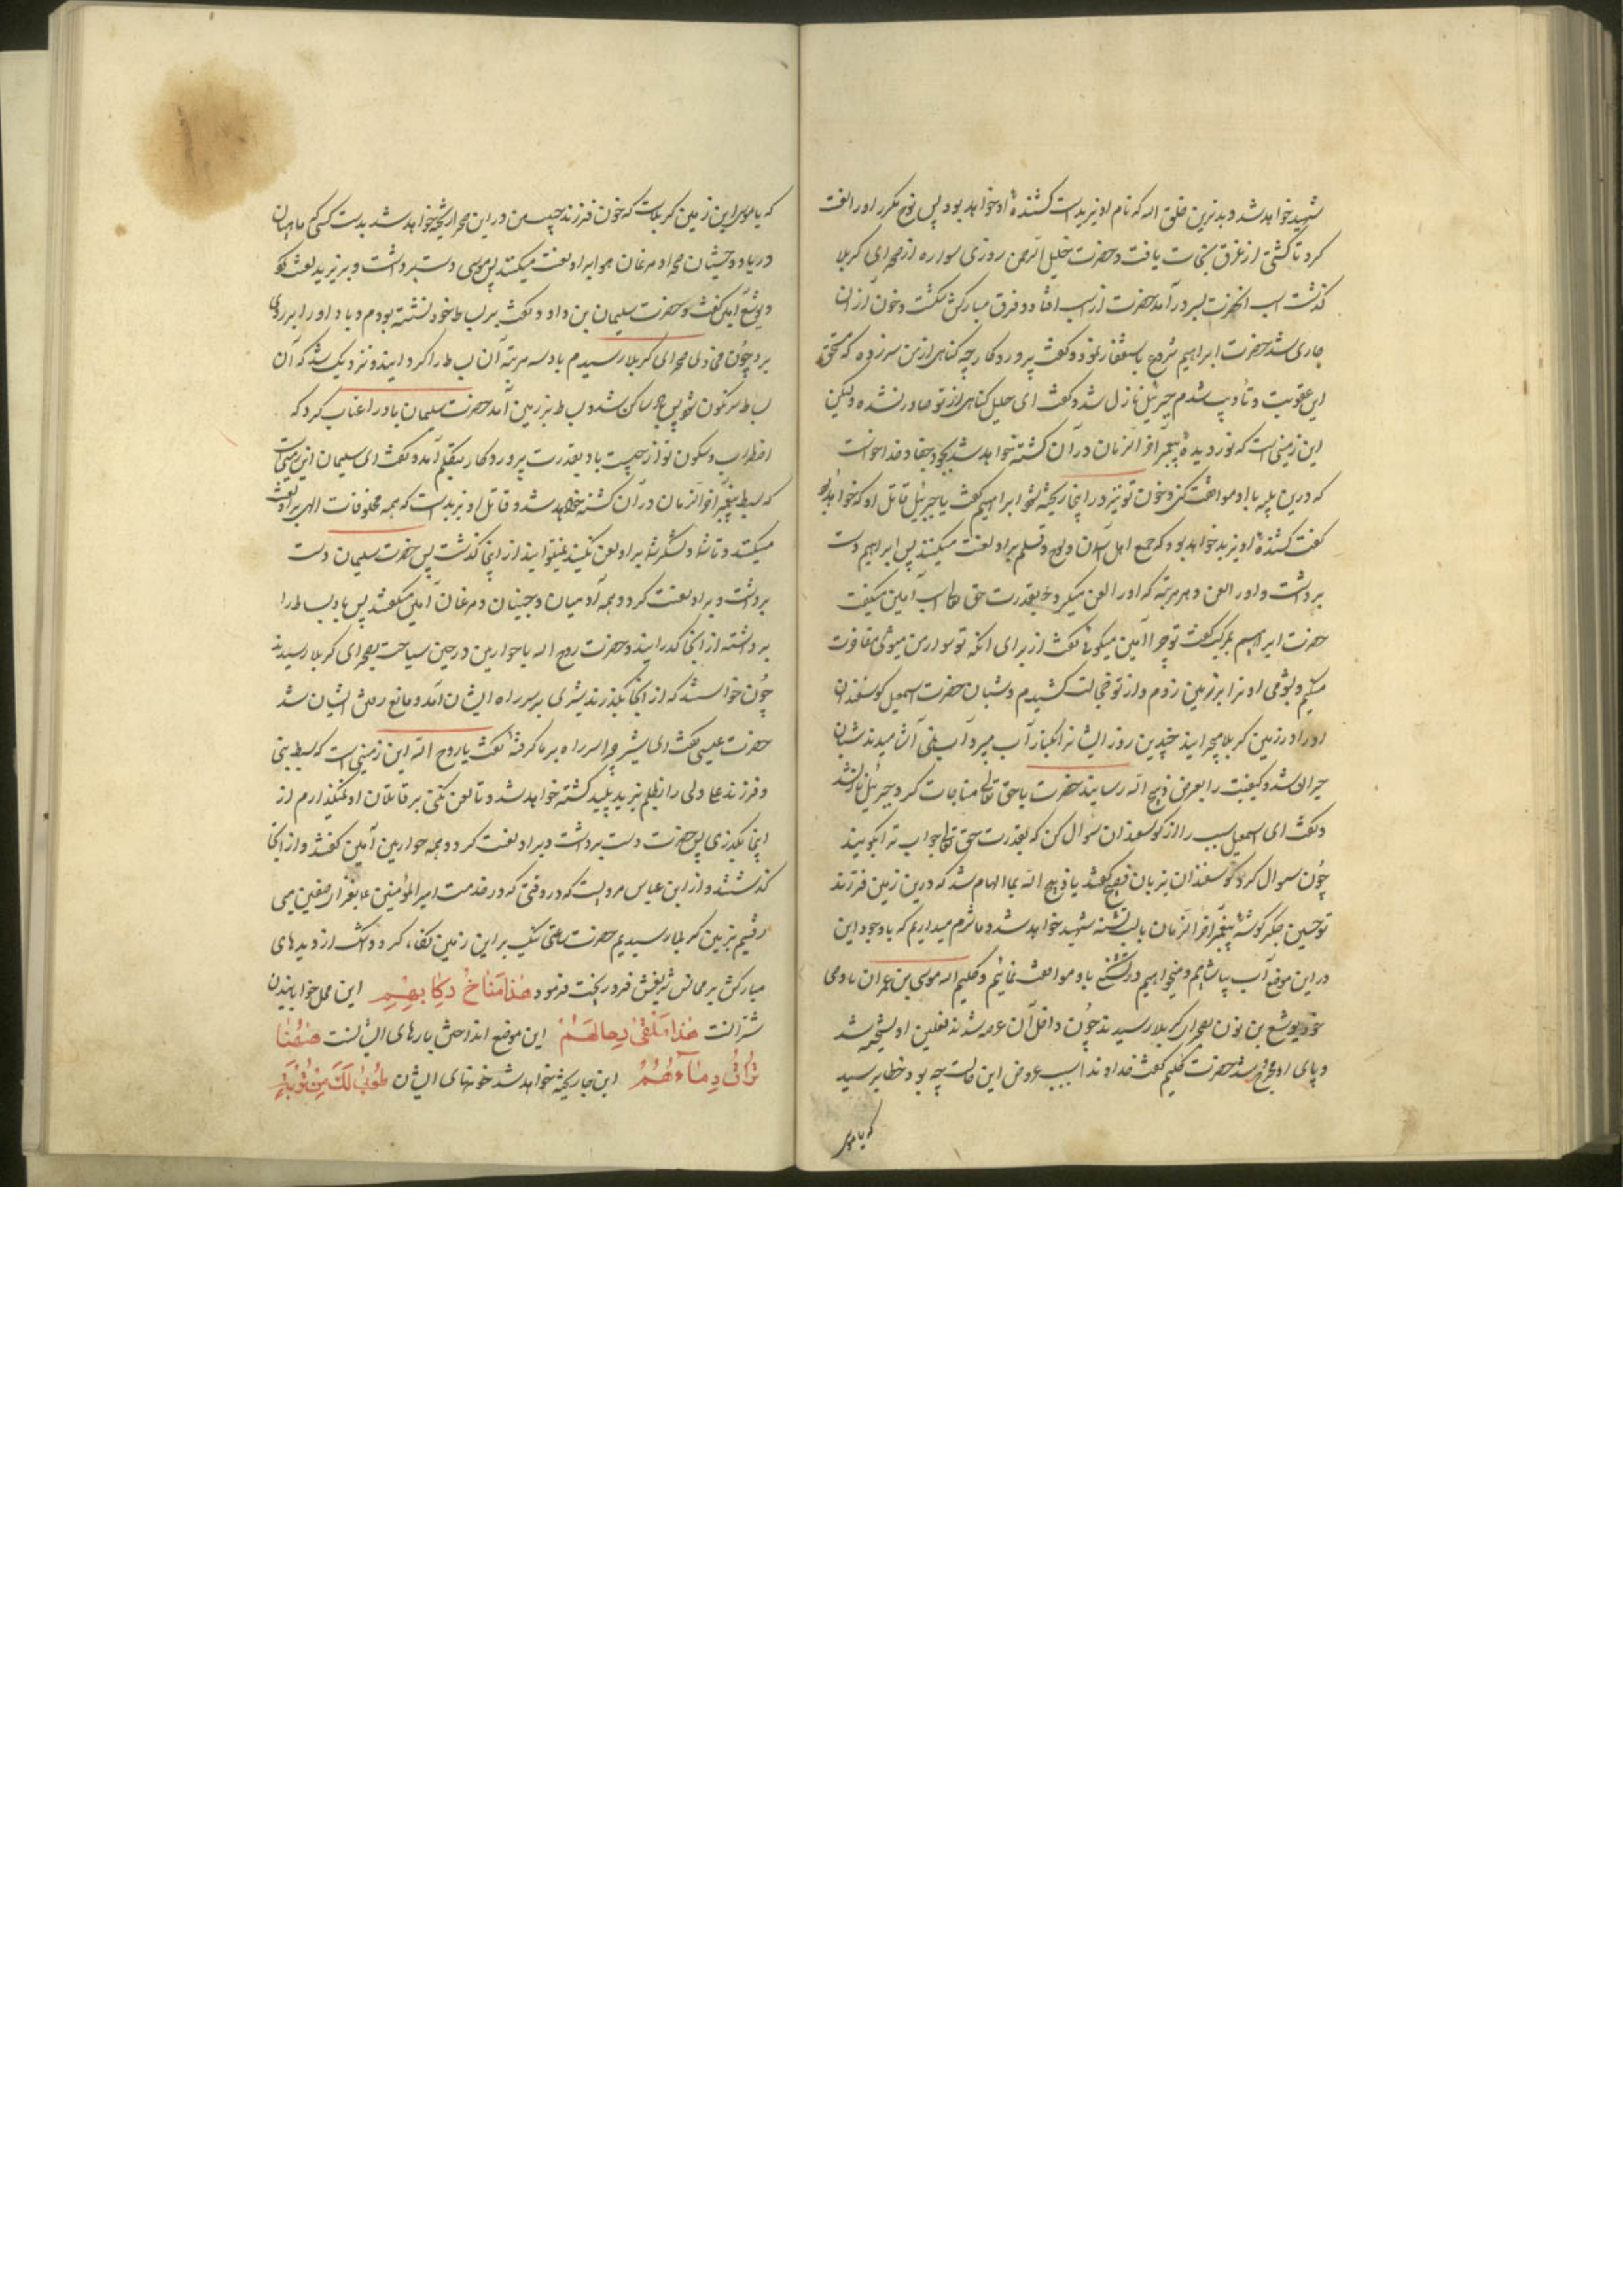 شهید خواهد شد و بدترین خلق اله که نام او یزید است کشندهٔ او خواهد بود پس نوح مکرر او را لعنت
کرد تا کشتی از غرق نجات یافت و حضرت خلیل الرحمن روزی سواره از صحرای کربلا
گذشت اسب انحضرت بسر در آمد حضرت از اسب افتاد و فرق مبارکش شکست و خون از ان
جاری شد حضرت ابراهیم شروع باستغفار نمود و گفت پروردگارا چه گناهی از من سر زده که مستحق
این عقوبت و تأدیب شدم جبرئیل نازل شد و گفت ای خلیل گناهی از تو صادر نشده ولیکن
این زمینی است که نور دیدهٔ پیغمبر آخر الزمان در آن کشته خواهد شد بجور و جفا و خدا خواست
که درین بلیه با او موافقت کنی و خون تو نیز در اینجا ریخته شود ابراهیم گفت یا جبرئیل قاتل او که خواهد بود
گفت کشندهٔ او یزید خواهد بود که جمیع اهل آسمان و لوح و قلم بر او لعنت میکنند پس ابراهیم دست
برداشت و او را لعن و هر مرتبه که او را لعن میکرد بقدرت حق تعالی اسب آمین میگفت
حضرت ابراهیم بمرکب گفت تو چرا آمین میگوئی گفت از برای انکه تو سوار من میشوی مفاوت
میکنم و بشومی او ترا بر زمین زدم و از تو خجالت کشیدم و شبان حضرت اسمعیل گوسفندان
او را در زمین کربلا میچرانید چندین روز ایشانرا بکنار آب میبرد آب نمی آشامیدند شبان
حیران شد و کیفیت را بعرض ذبیح الله رسانید حضرت با حق تعالی مناجات کرد جبرئیل نازل شد
و گفت ای اسمعیل سبب را از گوسفندان سؤال کن که بقدرت حق تعالی جواب ترا بگویند
چون سؤال کرد گوسفندان بزبان فصیح گفتند یا ذبیح الله بما الهام شد که درین زمین فرزند
تو حسین جگر گوشهٔ پیغمبر آخر الزمان با لب تشنه شهید خواهد شد و ما شرم میداریم که با وجود این
در این موضع آب بیاشامیم و میخواهیم در تشنگی باو موافقت نمائیم و کلیم اله موسی بن عمران با وصی
خود یوشع بن نون بصحرای کربلا رسیدند چون داخل آن عرصه شدند نعلین او گسیخته شد
و پای او مجروح شد حضرت کلیم گفت خداوندا سبب عروض این حالت چه بود خطاب رسید
که یا موسی
که یا موسی این زمین کربلاست که خون فرزند حبیب من در این صحرا ریخته خواهد شد بدست کسی که ماهیان
دریا و وحشیان صحرا و مرغان هوا بر او لعنت میکنند پس موسی دست برداشت و بر یزید لعنت کرد
و یوشع آمین گفت و حضرت سلیمان بن داود گفت بر بساط خود نشسته بودم و باد او را بر روی
برد چون محاذی صحرای کربلا رسیدم باد سه مرتبه آن بساط را گردانید و نزدیک شد که آن
بساط سرنگون شود پس باد ساکن شد و بساط بر زمین آمد حضرت سلیمان باد را عتاب کرد که
اضطراب و سکون تو از چیست باد بقدرت پروردگار بتکلم آمد و گفت ای سلیمان این زمینی است
که سبط پیغمبر آخر الزمان در آن کشته خواهد شد و قاتل او یزید است که همه مخلوقات الهی بر او لعنت
میکنند و تا شما و لشکر شما بر او لعن نکنند نمیتوانید از اینجا گذشت پس حضرت سلیمان دست
برداشت و بر او لعنت کرد و همه آدمیان و جنیان و مرغان آمین میگفتند پس باد بساط را
برداشته از انجا گذرانید و حضرت روح اله با حوارین در حین سیاحت بصحرای کربلا رسیدند
چون خواستند که از انجا بگذرند شیری بر سر راه ایشان آمد و مانع رفتن ایشان شد
حضرت عیسی گفت ای شیر چرا سر راه بر ما گرفتهٔ گفت یا روح الله این زمینی است که سبط نبی
و فرزند علی ولی را بظلم یزید پلید کشته خواهد شد و تا لعن نکنی بر قاتلان او نمیگذارم از
اینجا بگذری پس حضرت دست برداشت و بر او لعنت کرد و همه حوارین آمین گفتند و از انجا
گذشتند و از ابن عباس مرویست که در وقتی که در خدمت امیر المؤمنین علی بغزای صفین می
رفتیم بزمین کربلا رسیدیم حضرت ساعتی نیک بر این زمین نگاه کرد و اشک از دیدهای
مبارکش بر محاسن شریفش فرو ریخت فرمود هٰذا مَناخُ رِکابِهِم این محل خوابانیدن
شتر انست هٰذا مَلْقیٰ رِحالِهِمْ این موضع انداختن بارهای ایشانست هٰهُنا
تُراقُ دِمٰآءُهُمْ این جا ریخته خواهد شد خونهای ایشان طُوبیٰ لَکَ مِنْ تُرْبَةٍ